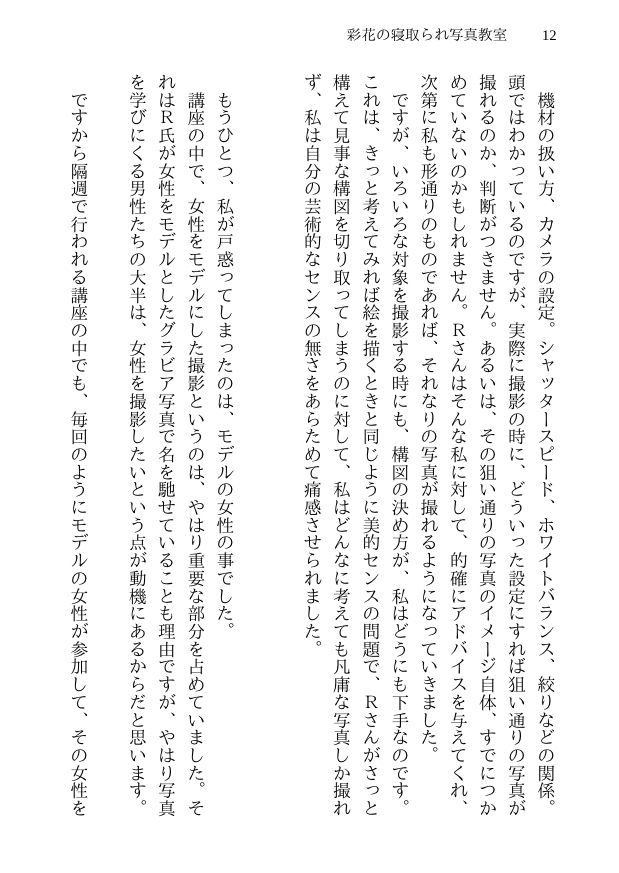 彩花の寝取られ写真教室　12
　機材の扱い方、カメラの設定。シャッタースピード、ホワイトバランス、絞りなどの関係。
頭ではわかっているのですが、実際に撮影の時に、どういった設定にすれば狙い通りの写真が
撮れるのか、判断がつきません。あるいは、その狙い通りの写真のイメージ自体、すでにつか
めていないのかもしれません。Ｒさんはそんな私に対して、的確にアドバイスを与えてくれ、
次第に私も形通りのものであれば、それなりの写真が撮れるようになっていきました。
　ですが、いろいろな対象を撮影する時にも、構図の決め方が、私はどうにも下手なのです。
これは、きっと考えてみれば絵を描くときと同じように美的センスの問題で、Ｒさんがさっと
構えて見事な構図を切り取ってしまうのに対して、私はどんなに考えても凡庸な写真しか撮れ
ず、私は自分の芸術的なセンスの無さをあらためて痛感させられました。
　もうひとつ、私が戸惑ってしまったのは、モデルの女性の事でした。
　講座の中で、女性をモデルにした撮影というのは、やはり重要な部分を占めていました。そ
れはＲ氏が女性をモデルとしたグラビア写真で名を馳せていることも理由ですが、やはり写真
を学びにくる男性たちの大半は、女性を撮影したいという点が動機にあるからだと思います。
　ですから隔週で行われる講座の中でも、毎回のようにモデルの女性が参加して、その女性を